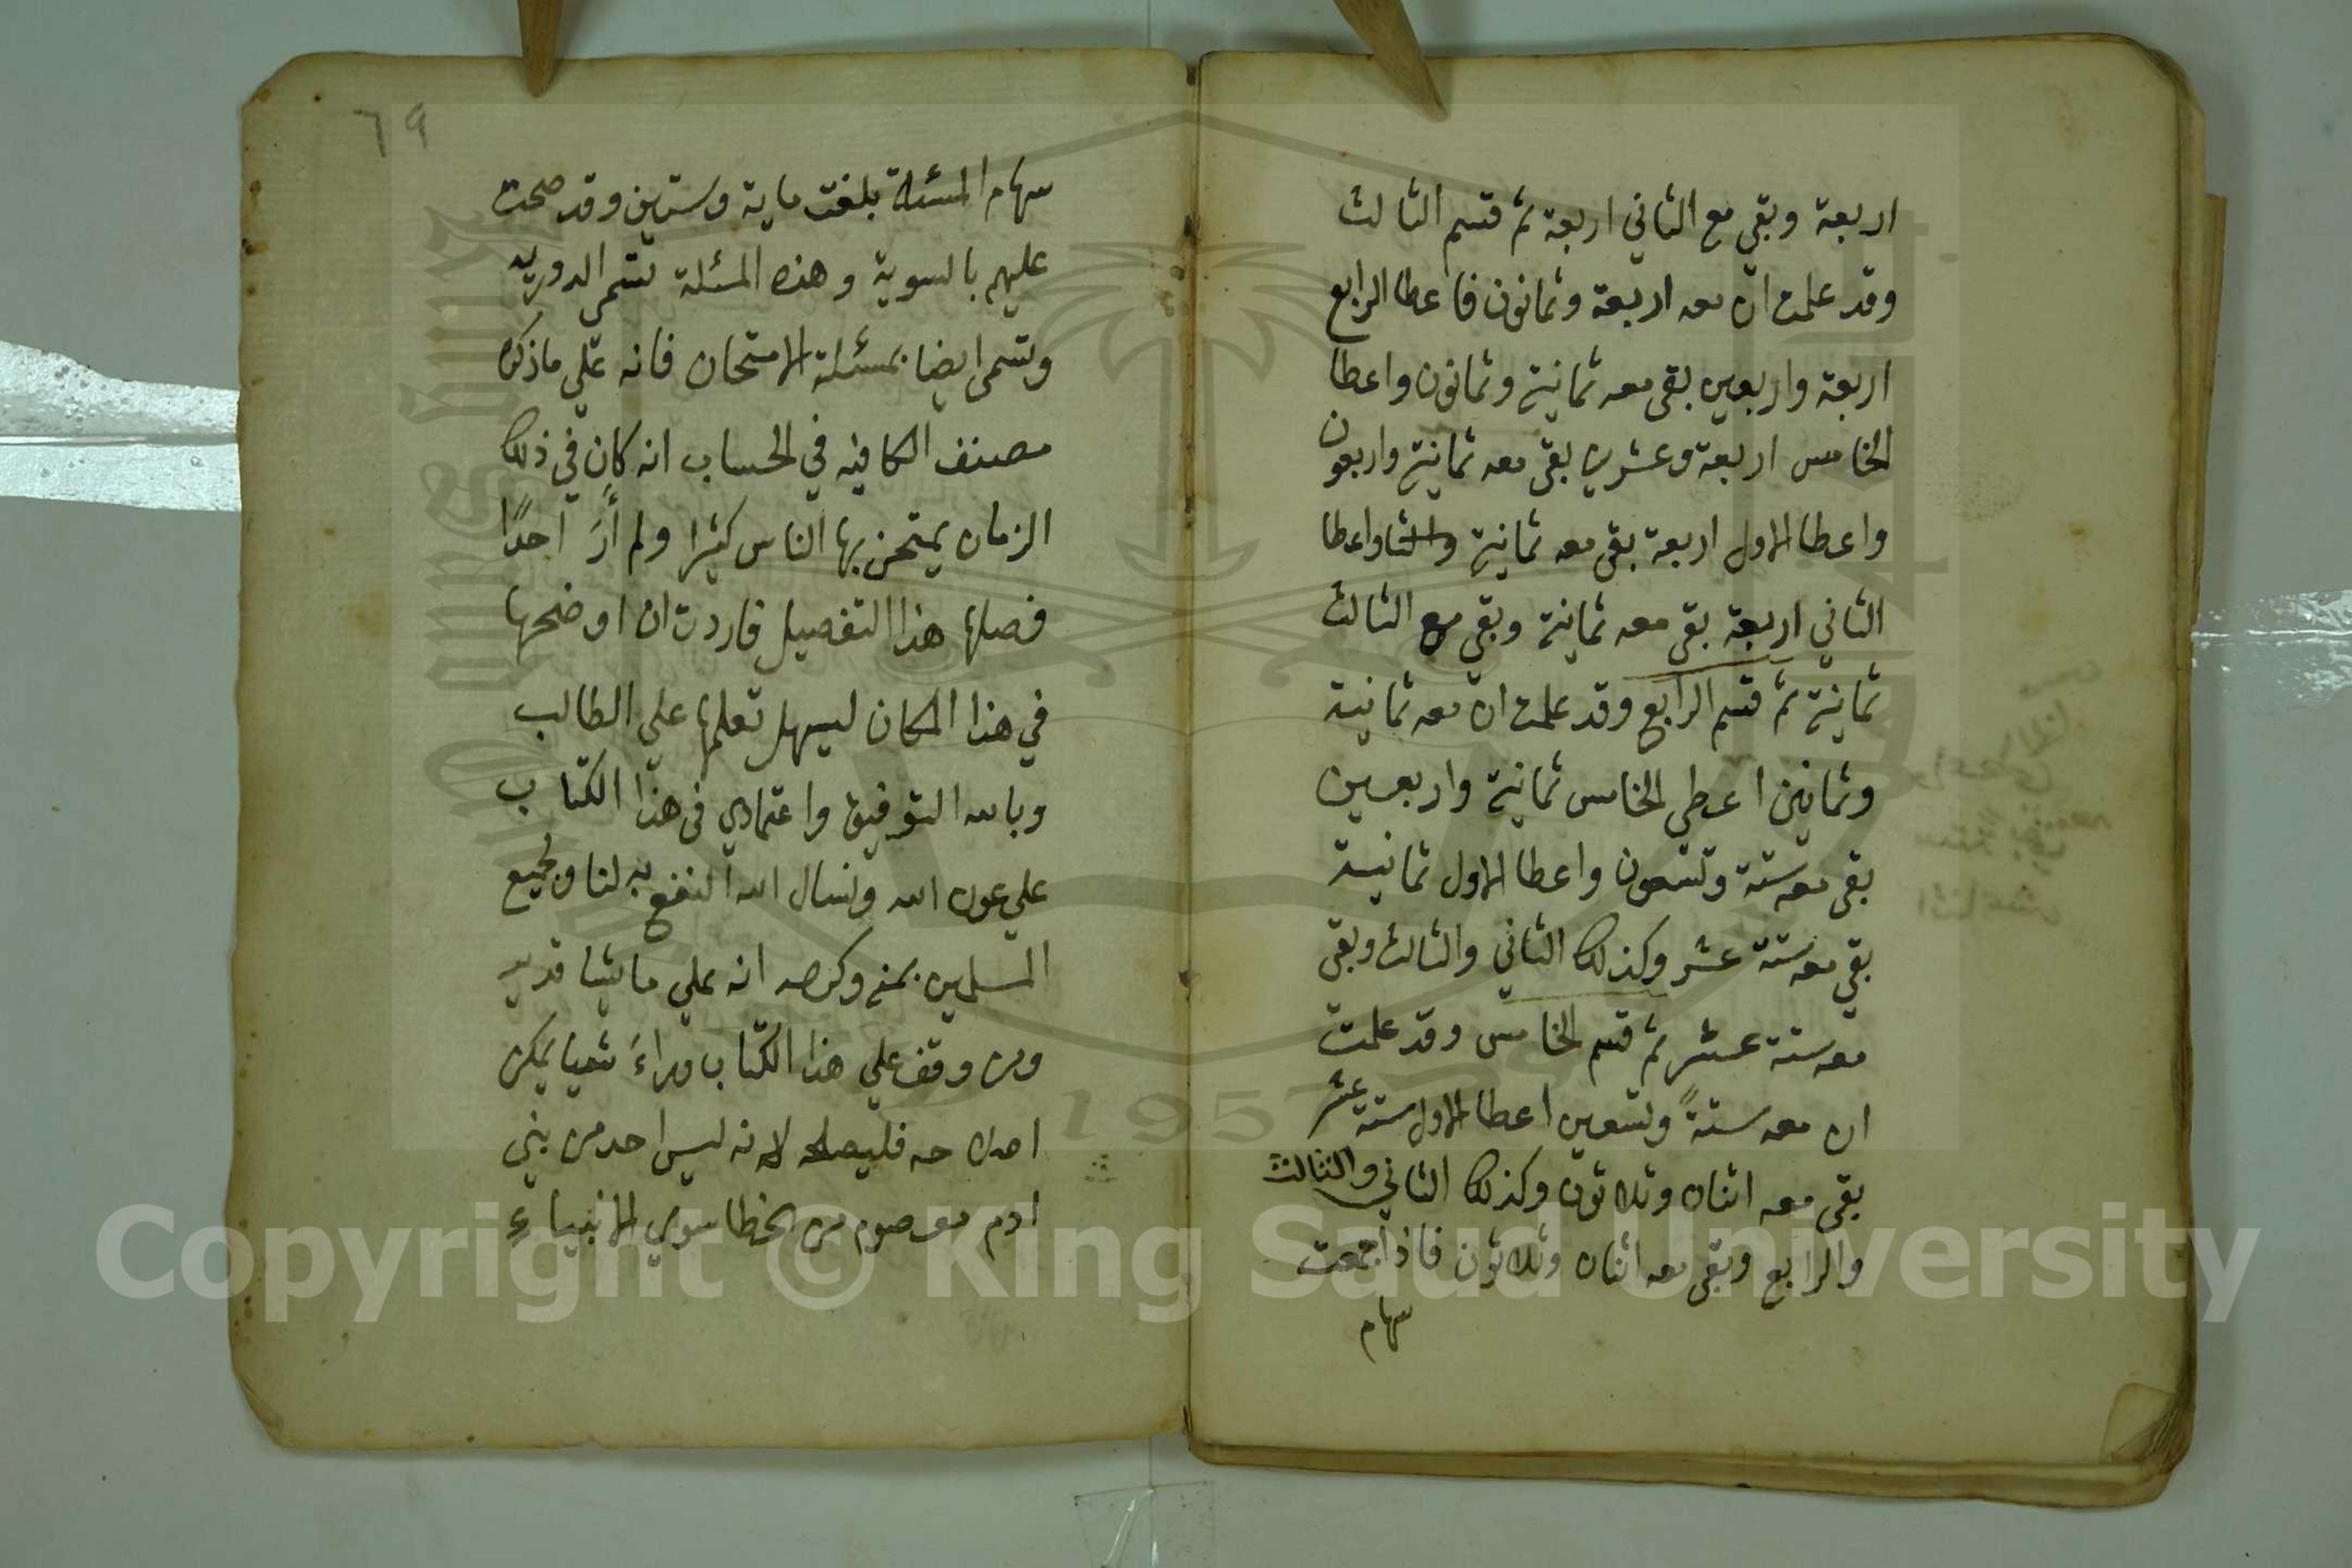 اربعة وبقي مع الثاني اربعة ثم قسم الثالث
وقد علمت ان معه اربعة وثمانون فاعطا الرابع
اربعة واربعين بقى معه ثمانية وثمانون واعطا
الخامس اربعة وعشرين بقى معه ثمانية واربعون
واعطا الاول اربعة بقى معه ثمانية واعطا
الثاني اربعة بقى معه ثمانية وبقي مع الثالث
ثمانية ثم قسم الرابع وقد علمت ان معه ثمانية
وثمانين اعطي الخامس ثمانية واربعين
بقى معه ستة وتسعون واعطا الاول ثمانية
بقي معه ستة عشر وكذلك الثاني والثالث وبقى
معه ستة عشر ثم قسم الخامس وقد علمت
ان معه ستةً وتسعين اعطا الاول ستة عشر
بقى معه اثنان وثلاثون وكذلك الثاني والثالث
والرابع وبقى معه اثنان وثلاثون فاذا جمعت
سهام
٦٩
سهام المسئلة بلغت ماية وستين وقد صحت
عليهم بالسوية وهذه المسئلة تسمى الدوريه
وتسمى ايضا بمسئلة الامتحان فانه علي ما ذكره
مصنف الكافيه في الحساب انه كان في ذلك
الزمان يمتحن بها الناس كثيرا ولم أرَ احدًا
فصلها هذا التفصيل فاردت ان اوضحها
في هذا المكان ليسهل تعلمها علي الطالب
وبالله التوفيق واعتمادي فى هذا الكتاب
علي عون الله ونسال الله النفع به لنا ولجميع
المسلمين بمنه وكرمه انه علي ما يشا قدير
ومن وقف علي هذا الكتاب وراءَ شيا يمكن
اصلاحه فليصلحه لانه ليس احد من بني
ادم معصوم من الخطا سوي الانبياءِ
Copyright © King Saud University
1957